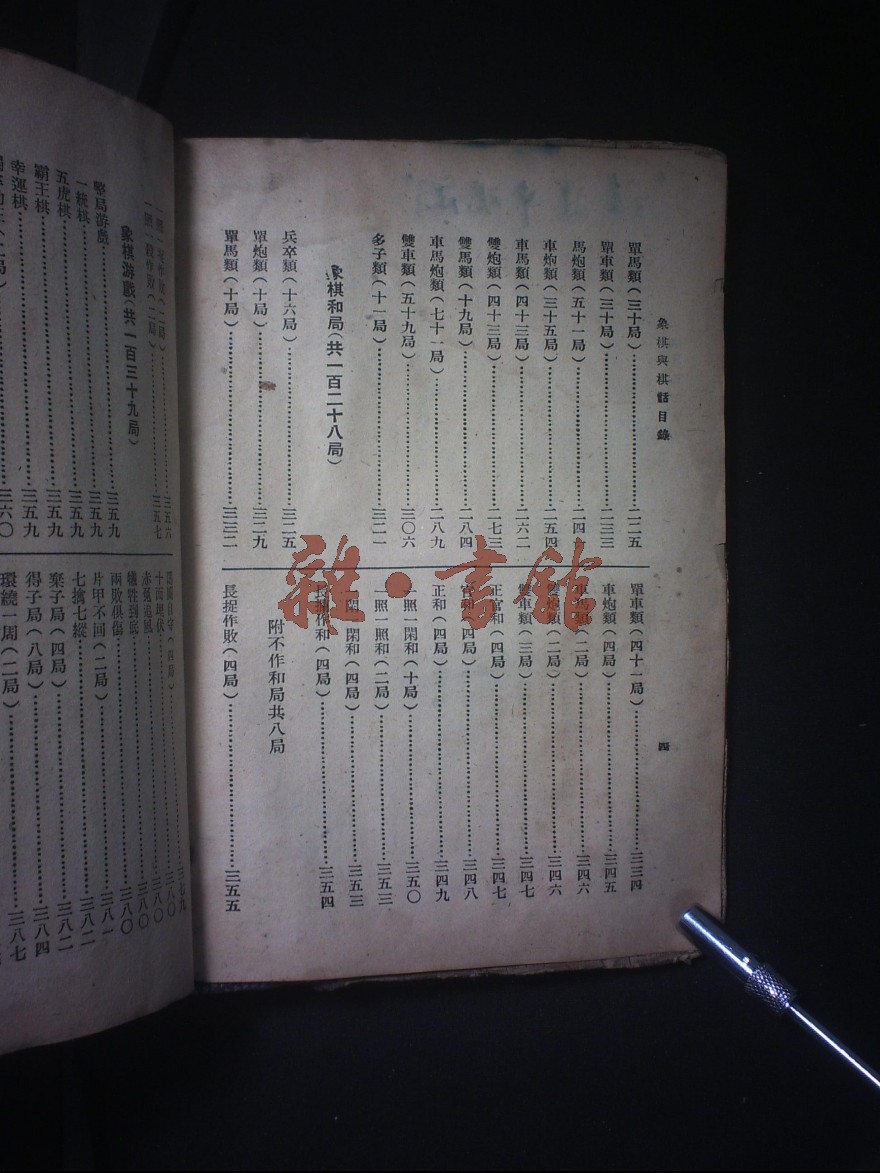 象棋與棋話目錄
四
單馬類(三十局)……二二五
單車類(三十局)……二三三
馬炮類(五十一局)……二四一
車炮類(三十五局)……二五四
車馬類(四十三局)……二六二
雙炮類(四十三局)……二七三
雙馬類(十九局)……二八四
車馬炮類(七十一局)……二八九
雙車類(五十九局)……三〇六
多子類(十一局)……三二一
象棋和局(共一百二十八局)
兵卒類(十六局)……三二五
單炮類(十局)……三二九
單馬類(十局)……三三二
單車類(四十一局)……三三四
車炮類(四局)……三四五
車馬類(二局)……三四六
雙炮類(二局)……三四六
雙車類(三局)……三四七
正官和(四局)……三四七
官和(四局)……三四八
正和(四局)……三四九
一照一閑和(十局)……三五〇
一照一照和(二局)……三五三
一閑一閑和(四局)……三五三
長捉作和(四局)……三五四
附不作和局共八局
長捉作敗(四局)……三五五
(二局)……三五六
一照一殺作敗(二局)……三五七
象棋游戲(共一百三十九局)
整局游戲……三五九
一統棋……三五九
五虎棋……三五九
霸王棋……三五九
幸運棋……三六〇
(四局)……三七九
十面埋伏……三八〇
赤兔追風……三八〇
犧牲到底……三八〇
兩敗俱傷……三八〇
片甲不回(二局)……三八一
七擒七縱……三八二
棄子局(四局)……三八二
得子局(八局)……三八四
環繞一周(二局)……三八七
雜·書館